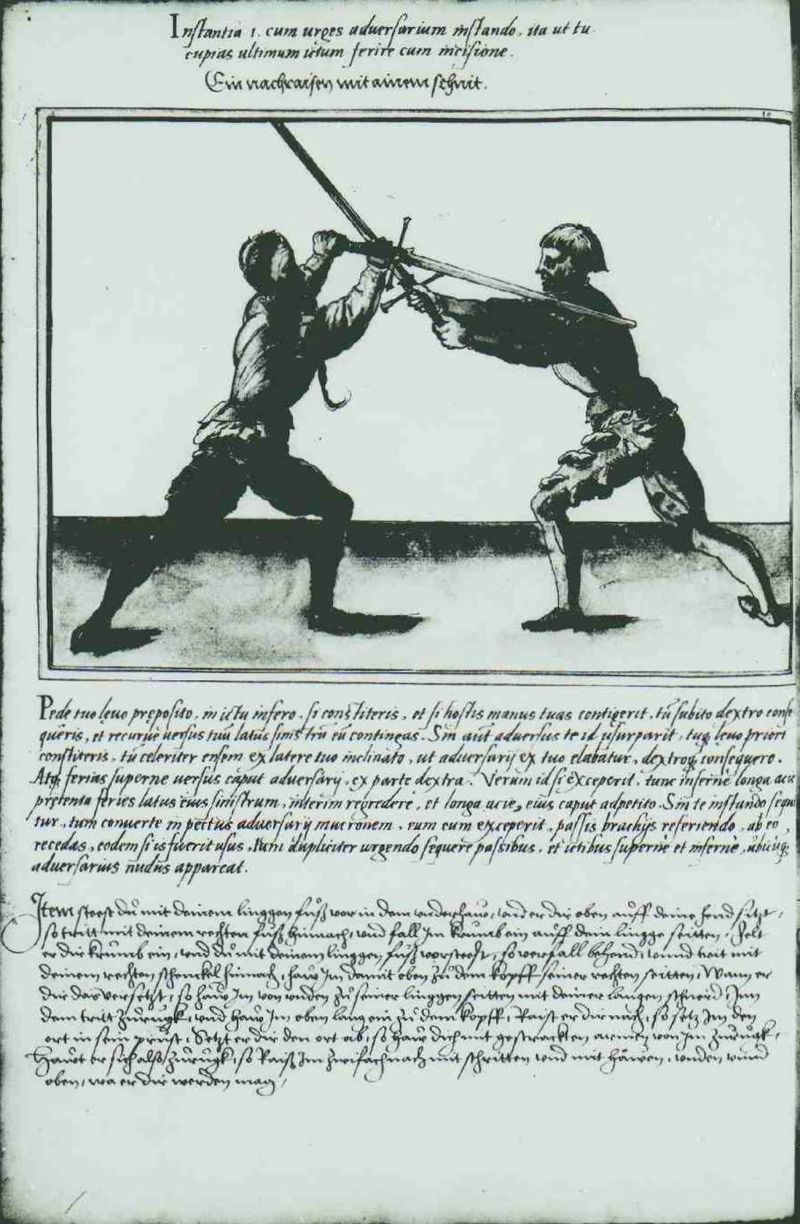 Instantia 1. cum urges adversarium instando, ita ut tu
cupias ultimum ictum ferire cum incisione.
Ein nachraisen mit ainem schnit.
Pede tuo levo preposito, in ictu infero, si constiteris, et si hostis manus tuas contigerit, tu subito dextro conse
queris, et recurue versus tuu latus sinistru eu contingas. Sin aut adversus te id usurparit, tuq levo priori
constiteris, tu celeriter ensem ex latere tuo inclinato, ut adversarij ex tuo elabatur, dextroq consequere.
Atq ferias superne versus caput adversarij, ex parte dextra. Verum id si exceperit, tunc inferne longa acie
pretenta feries latus eius sinistrum, interim regredere, et longa acie, eius caput adpetito. Sin te instando sequi
tur, tum converte in pectus adversarij mucronem, eum cum exceperit, passis brachijs referiendo, ab eo
recedas, eodem si is fuerit usus, tum dupliciter urgendo sequere passibus, et ictibus superne et inferne, ubicuq
adversarius nudus appareat.
Item steest du mit deinem linggen fuß vor in dem underhaw, und er dir oben auff deine hend felt,
so tritt mit deinem rechten fuß hinnach, und fall Im krumb ein auff dein lingge seitten, felt
er dir krumb ein, und du mit deinem linggen fuß vorsteest, so verfall behend, unnd trit mit
deinem rechten schenckel hinnach, haw Im damit oben zu dem kopff seiner rechten seitten, Wann er
dir das versetzt, so haw Im von unden zu seiner linggen seitten mit deiner langen schneid, Inn
dem tritt zurugk, und haw Im oben lang ein zu dem kopff, Raist er dir nach, so setz Im den
ort in sein prust, Setzt er dir den ort ab, so haw dich mit gestrackten armen von Im zurugk,
Hawt er sich also zurugk, so Raiß Im zwifach nach mit schritten und mit häwen, unden unnd
oben, wa er dir werden mag,